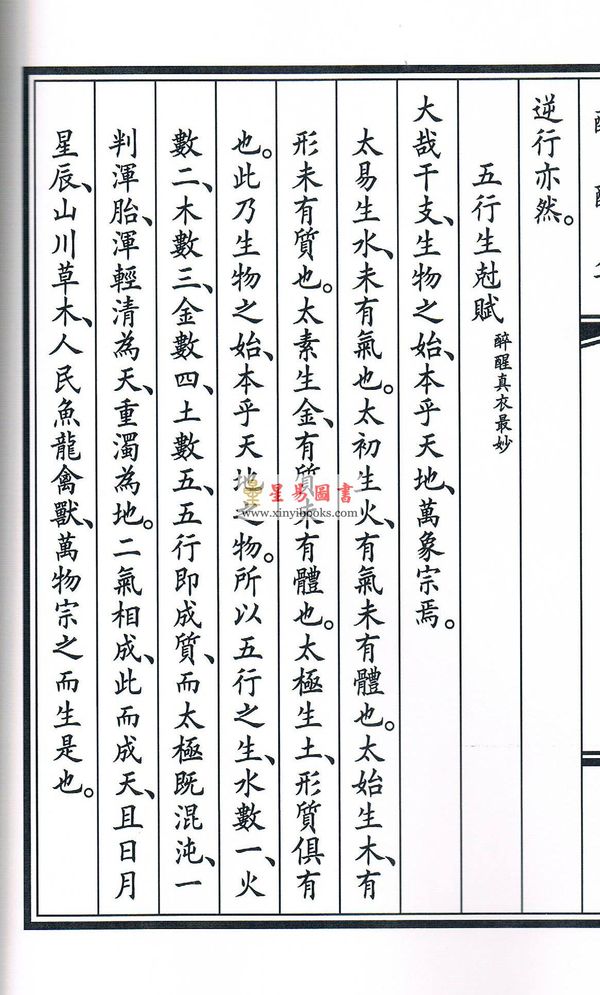 逆行亦然。
五行生尅賦 醉醒真衣最妙
大哉干支、生物之始、本乎天地、萬象宗焉。
太易生水、未有氣也。太初生火、有氣未有體也。太始生木、有
形未有質也。太素生金、有質未有體也。太極生土、形質俱有
也。此乃生物之始、本乎天地之物。所以五行之生、水數一、火
數二、木數三、金數四、土數五、五行即成質、而太極既混沌、一
判渾胎、渾輕清為天、重濁為地。二氣相成、此而成天、且日月
星辰、山川草木、人民魚龍禽獸、萬物宗之而生是也。
星易圖書
www.xinyibooks.com